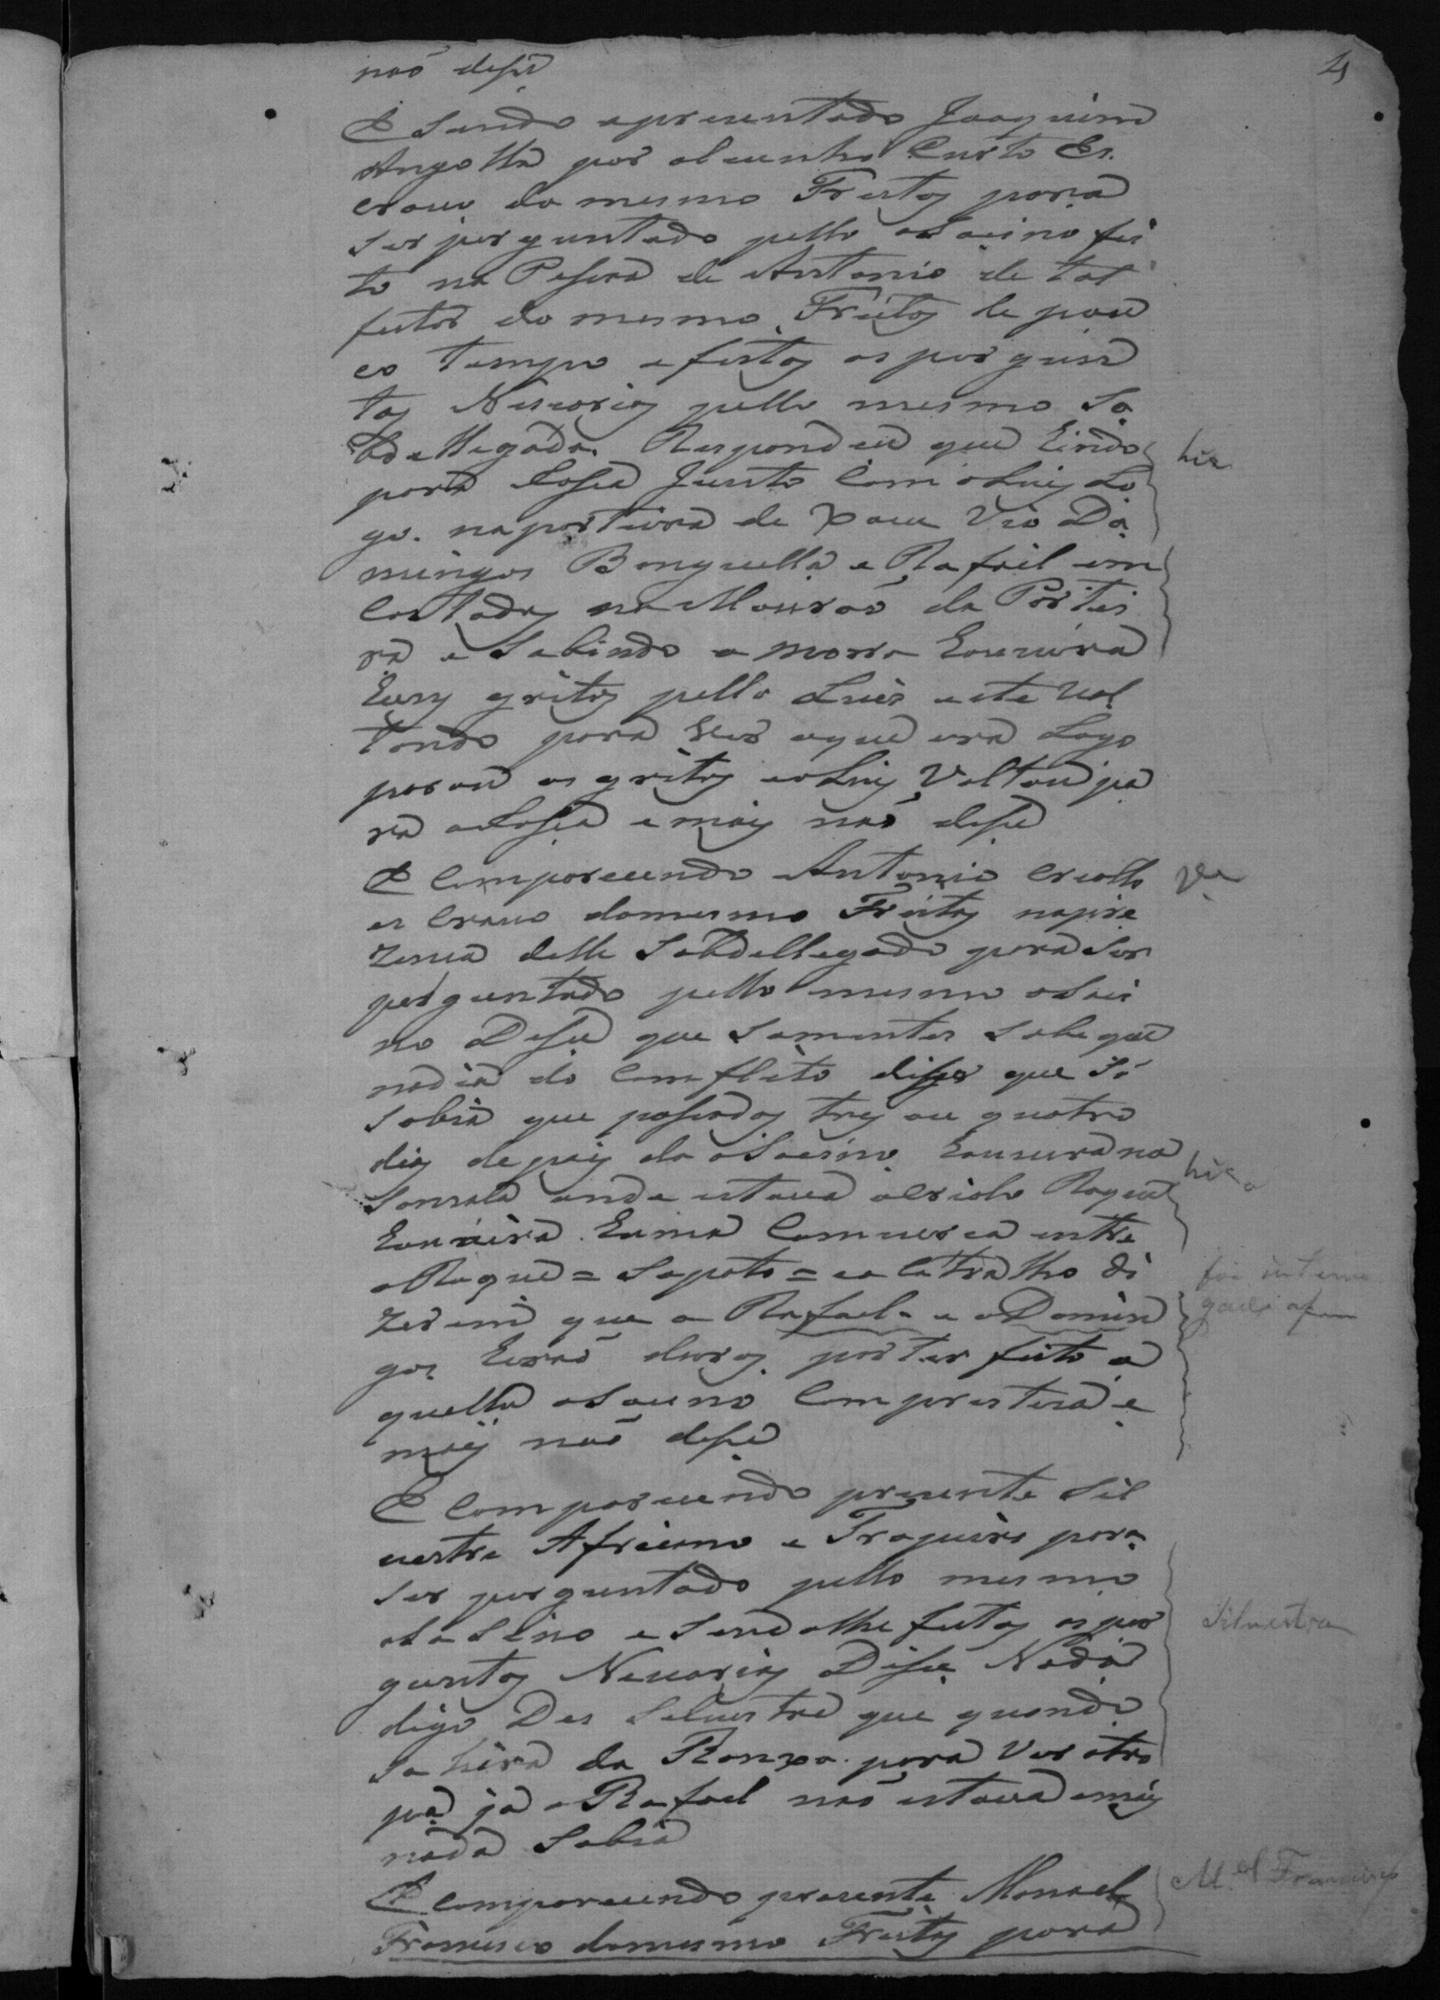 4
naõ dise
E sendo aprezentado Joaquim
Angolla por alcunho Curto Es
cravo do mesmo Freitas para
ser perguntado pello asacino fei
to na Pesoa de Antonio de tal
feitor do mesmo Freitas le pou
co tempo e feitas as pergun
tas Necesarias pello mesmo So
bdellegado. Respondeu que hindo
para Casa junto com o Luis Lo
go. na porteira de vara Vio Do
mingos Benguella e Rafael em
Costados no Mouraõ da Portei
ra e Sabindo o morro houvira
huns gritos pello Luis e este vol
tando para ver o que era Logo
parou os gritos e o Luis Voltou pa
ra a Casa e mais naõ dise
E Comparecendo Antonio Criollo
es Cravo do mesmo Freitas na pre
zenca delle Sobdellegado para ser
perguntado pello mesmo asaci
no Dise que somentes sabe que
nada do Comflito dise que só
sabia que pasados tres ou quatro
dias depois do asacino houvera na
Sonzala onde estava o criolo Roque
houvira huma Comversa entre
o Roque = Sapato = e o Catralho di
zerem que o Rafael e o Domin
gos heraõ duros por ter feito a
quella asacino Com presteza e
mais naõ dise
E Comparecendo prezente Sil
vestre Africano e Tropeiro para
ser perguntado pello mesmo
asasino e sendolhe feitas as per
guntas Necesarias Dise Nada
digo Des Silvestre que quando
sahira do Ranxo para Ver a tro
pa já o Rafael naõ estava e mais
nada Sabia
E comparecendo prezente Manoel
Francisco do mesmo Freitas para
Silvestre
M.el Francisco